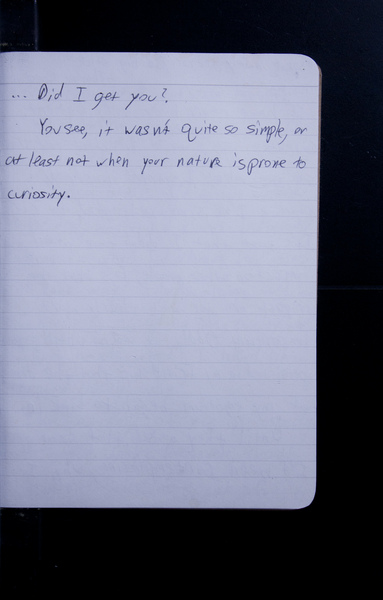 ... Did I get you?.
You see, it wasn't quite so simple, or
at least not when your nature is prone to
curiosity.